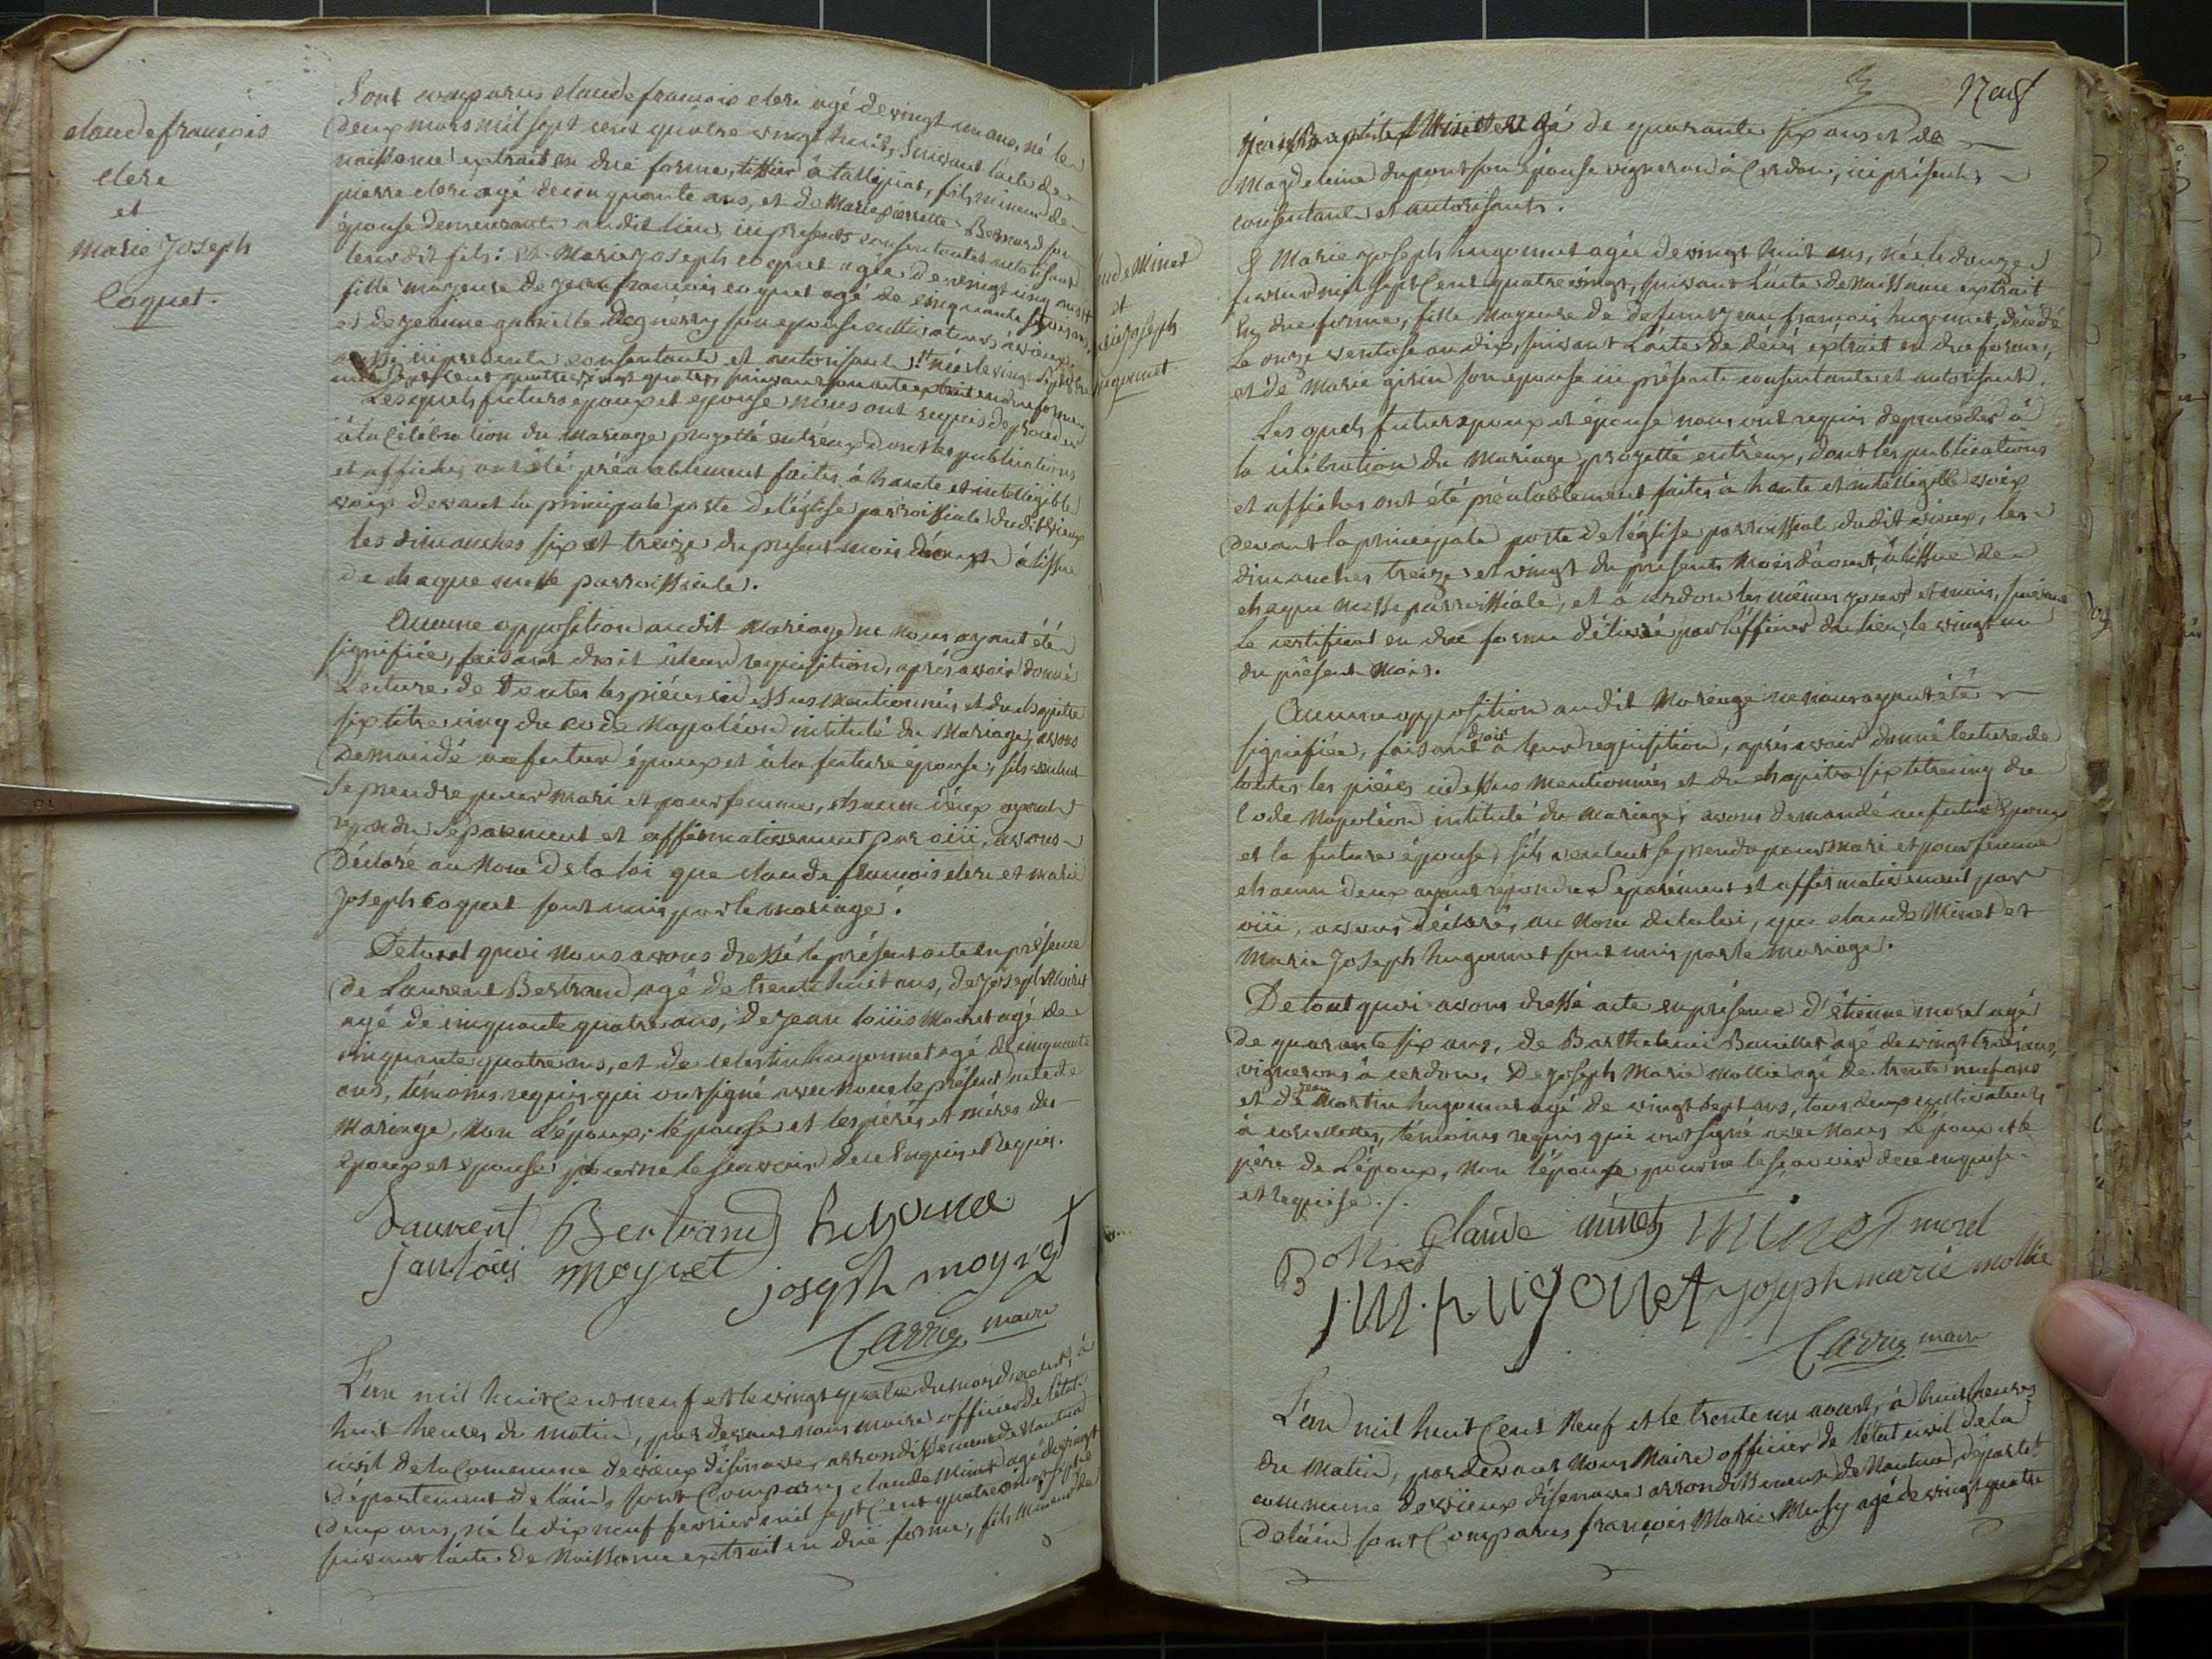 claude françois
clerc
et
marie Joseph
Coquet.
Sont comparus claude francois clerc agé de vingt un ans, né le
deux mars mil sept cent quatre vingt huit, suivant l'acte de
naissance extrait en due forme, tissier à fils mineur de
pierre clerc agé de cinquante ans, et de Marie pierrette Bernard son
épouse demeurants audit lieu, ici présents consentants et autorisant
leur dit fils: et Marie joseph coquet agée de vingt cinq ans
fille majeure de jean francois coquet agé de cinquante ans,
et de jeanne gabrielle son epouse cultivateurs à vieux
aussi ici presents consentants et autorisant née le vingt
mil sept cent quatre vingt quatre, suivant son acte extrait en due forme
Lesquels futurs epoux et epouse nous ont requis de proceder
à la Célébration du Mariage projetté entr'eux dont les publications
et affiches ont été préalablement faites à haute et intelligible
voix devant la principale porte de l'église parroissiale dudit vieux
les dimanches six et treize du present mois d'aoust à l'issue
de chaque messe parroissiale.
Aucune opposition audit Mariage ne nous ayant été
signifiée, faisant droit à leur requisition, après avoir donné
Lecture de toutes les pièces ci dessus mentionnées et du chapitre
six titre cinq du code Napoléon intitulé du Mariage, avons
Demandé au futur époux et à la future épouse, s'ils veulent
se prendre pour mari et pour femme, chacun d'eux ayant
répondu séparement et affirmativement par oüi, avons
Déclaré au Nom de la loi que claude francois clerc et marie
Joseph Coquet sont unis par le mariage.
De tout quoi nous avons dressé le présent acte en présence
de Laurent Bertrand agé de trente huit ans, de Joseph Moiret
agé de cinquante quatre ans, de jean loüis Moiret agé de
cinquante quatre ans, et de celestin hugonnet agé de cinquante
ans, témoins requis qui ont signé avec nous le présent acte de
Mariage, Non L'époux, l'épouse et les pères et mères des
époux et épouse pour ne le sçavoir de ce Enquis et Requis.
Laurent Bertrand
Jan loüis moyret joseph moyret
Carrier maire
L'an mil huit Cent neuf et le vingt quatre du mois d'aoust, à
huit heures du matin, par devant nous maire officier de l'état
civil de la Commune de vieux d'isenave, arrondissement de Nantua
département de l'ain, sont Comparus claude Minet agé de vingt
deux ans, né le dix neuf fevrier mil sept Cent quatre vingt sept
suivant l'acte de Naissance extrait en due forme, fils Mineur de
Neuf
claude Minet
et
marie joseph
hugonnet
jean Baptiste Minet agé de quarante six ans et de
Magdeleine dupont son épouse vigneron à Cerdon, ici présents
consentants et autorisants.
& Marie joseph hugonnet agée de vingt huit ans, née le douze
fevrier mil sept Cent quatre vingt, suivant l'acte de Naissance extrait
En due forme, fille Majeure de defunt jean françois hugonnet, décédé
Le onze ventose an dix, suivant l'acte de décès extrait en due forme,
et de Marie girin son epouse ici présente consentante et autorisant.
Lesquels futurs epoux et épouse nous ont requis de proceder à
la célébration du Mariage projetté entr'eux, dont les publications
et affiches ont été préalablement faites à haute et intelligible voix
devant la principale porte de l'église parroissial dudit vieux, les
dimanches treize et vingt du présents Mois d'aoust, à l'issue de
chaque Messe parroissiale, et à cerdon les mêmes jours et mois, suivant
Le certificat en due forme délivré par l'officier du lieu, le vingt un
du présent Mois.
Aucune opposition audit Mariage ne nous ayant été
signifiée, faisant droit à leur requisition, après avoir donné lecture de
toutes les pièces ci dessus Mentionnées et du chapitre six titre cinq du
Code Napoléon intitulé du Mariage; avons Demandé au futur Epoux
et la future épouse, s'ils veulent se prendre pour Mari et pour femme
chacun d'eux ayant répondu séparément et affirmativement par
oüi, avons déclaré, au Nom de la loi, que claude Minet et
Marie Joseph hugonnet sont unis par le Mariage.
De tout quoi avons dressé acte en présence d'étienne morel agé
de quarante six ans, de Barthelemi agé de vingt trois ans,
vignerons à cerdon, De joseph Marie Mollie agé de trente neuf ans
et de jean Martin hugonnet agé de vingt sept ans, tous deux cultivateurs
à témoins requis qui ont signé avec Nous L'époux et le
père de L'époux, Non l'épouse pour ne le sçavoir de ce enquise
et Requise ./.
Claude minet minet morel
j.m. hugonet joseph marie mollie
Carrier maire
L'an mil huit Cent Neuf et le trente un aoust, à huit heures
du Matin, pardevant Nous Maire officier de l'état civil de la
commune de vieux d'isenave arrondissement de Nantua, départet
de l'ain sont Comparus françois Marie Musy agé de vingt quatre